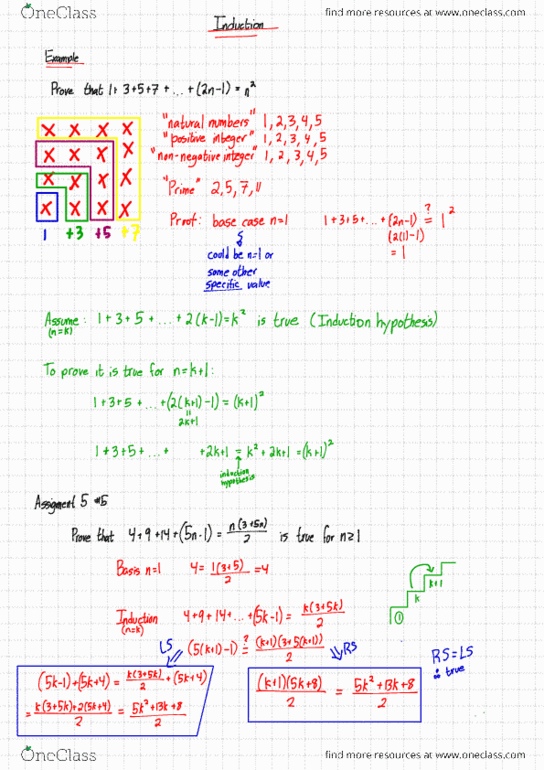 OneClass
find more resources at www.oneclass.com
Induction
Example
Prove that 1+ 3+5+7 + ... + (2n-1) = n²
x x x x
x x x x
x x x x
x x x x
1 +3 +5 +7
"natural numbers" 1, 2, 3, 4, 5
"positive integer" 1, 2, 3, 4, 5
"non-negative integer" 1, 2, 3, 4, 5
"Prime" 2, 5, 7, 11
Proof: base case n=1
could be n=1 or
some other
specific value
1+3+5+ ... + (2n-1) ?= 1²
(2(1)-1)
= 1
Assume: 1 + 3 + 5 + ... + 2(k-1) = k² is true (Induction hypothesis)
(n=k)
To prove it is true for n=k+1:
1+3+5+ ... +(2(k+1)-1) = (k+1)²
=
2k+1
1+3+5+ ... + +2k+1 = k² + 2k+1 = (k+1)²
induction
hypothesis
Assigment 5 #5
Prove that 4+9+14+(5n-1) = n(3+5n)/2 is true for n≥1
Basis n=1 4 = 1(3+5)/2 = 4
Induction 4+9+14+ ... +(5k-1) = k(3+5k)/2
(n=k)
LS (5(k+1)-1) ?= (k+1)(3+5(k+1))/2 RS
(5k-1)+(5k+4) = k(3+5k)/2 + (5k+4)
= k(3+5k)+2(5k+4)/2 = 5k²+13k+8/2
(k+1)(5k+8)/2 = 5k²+13k+8/2
1 k k+1
RS=LS
∴ true
OneClass
find more resources at www.oneclass.com